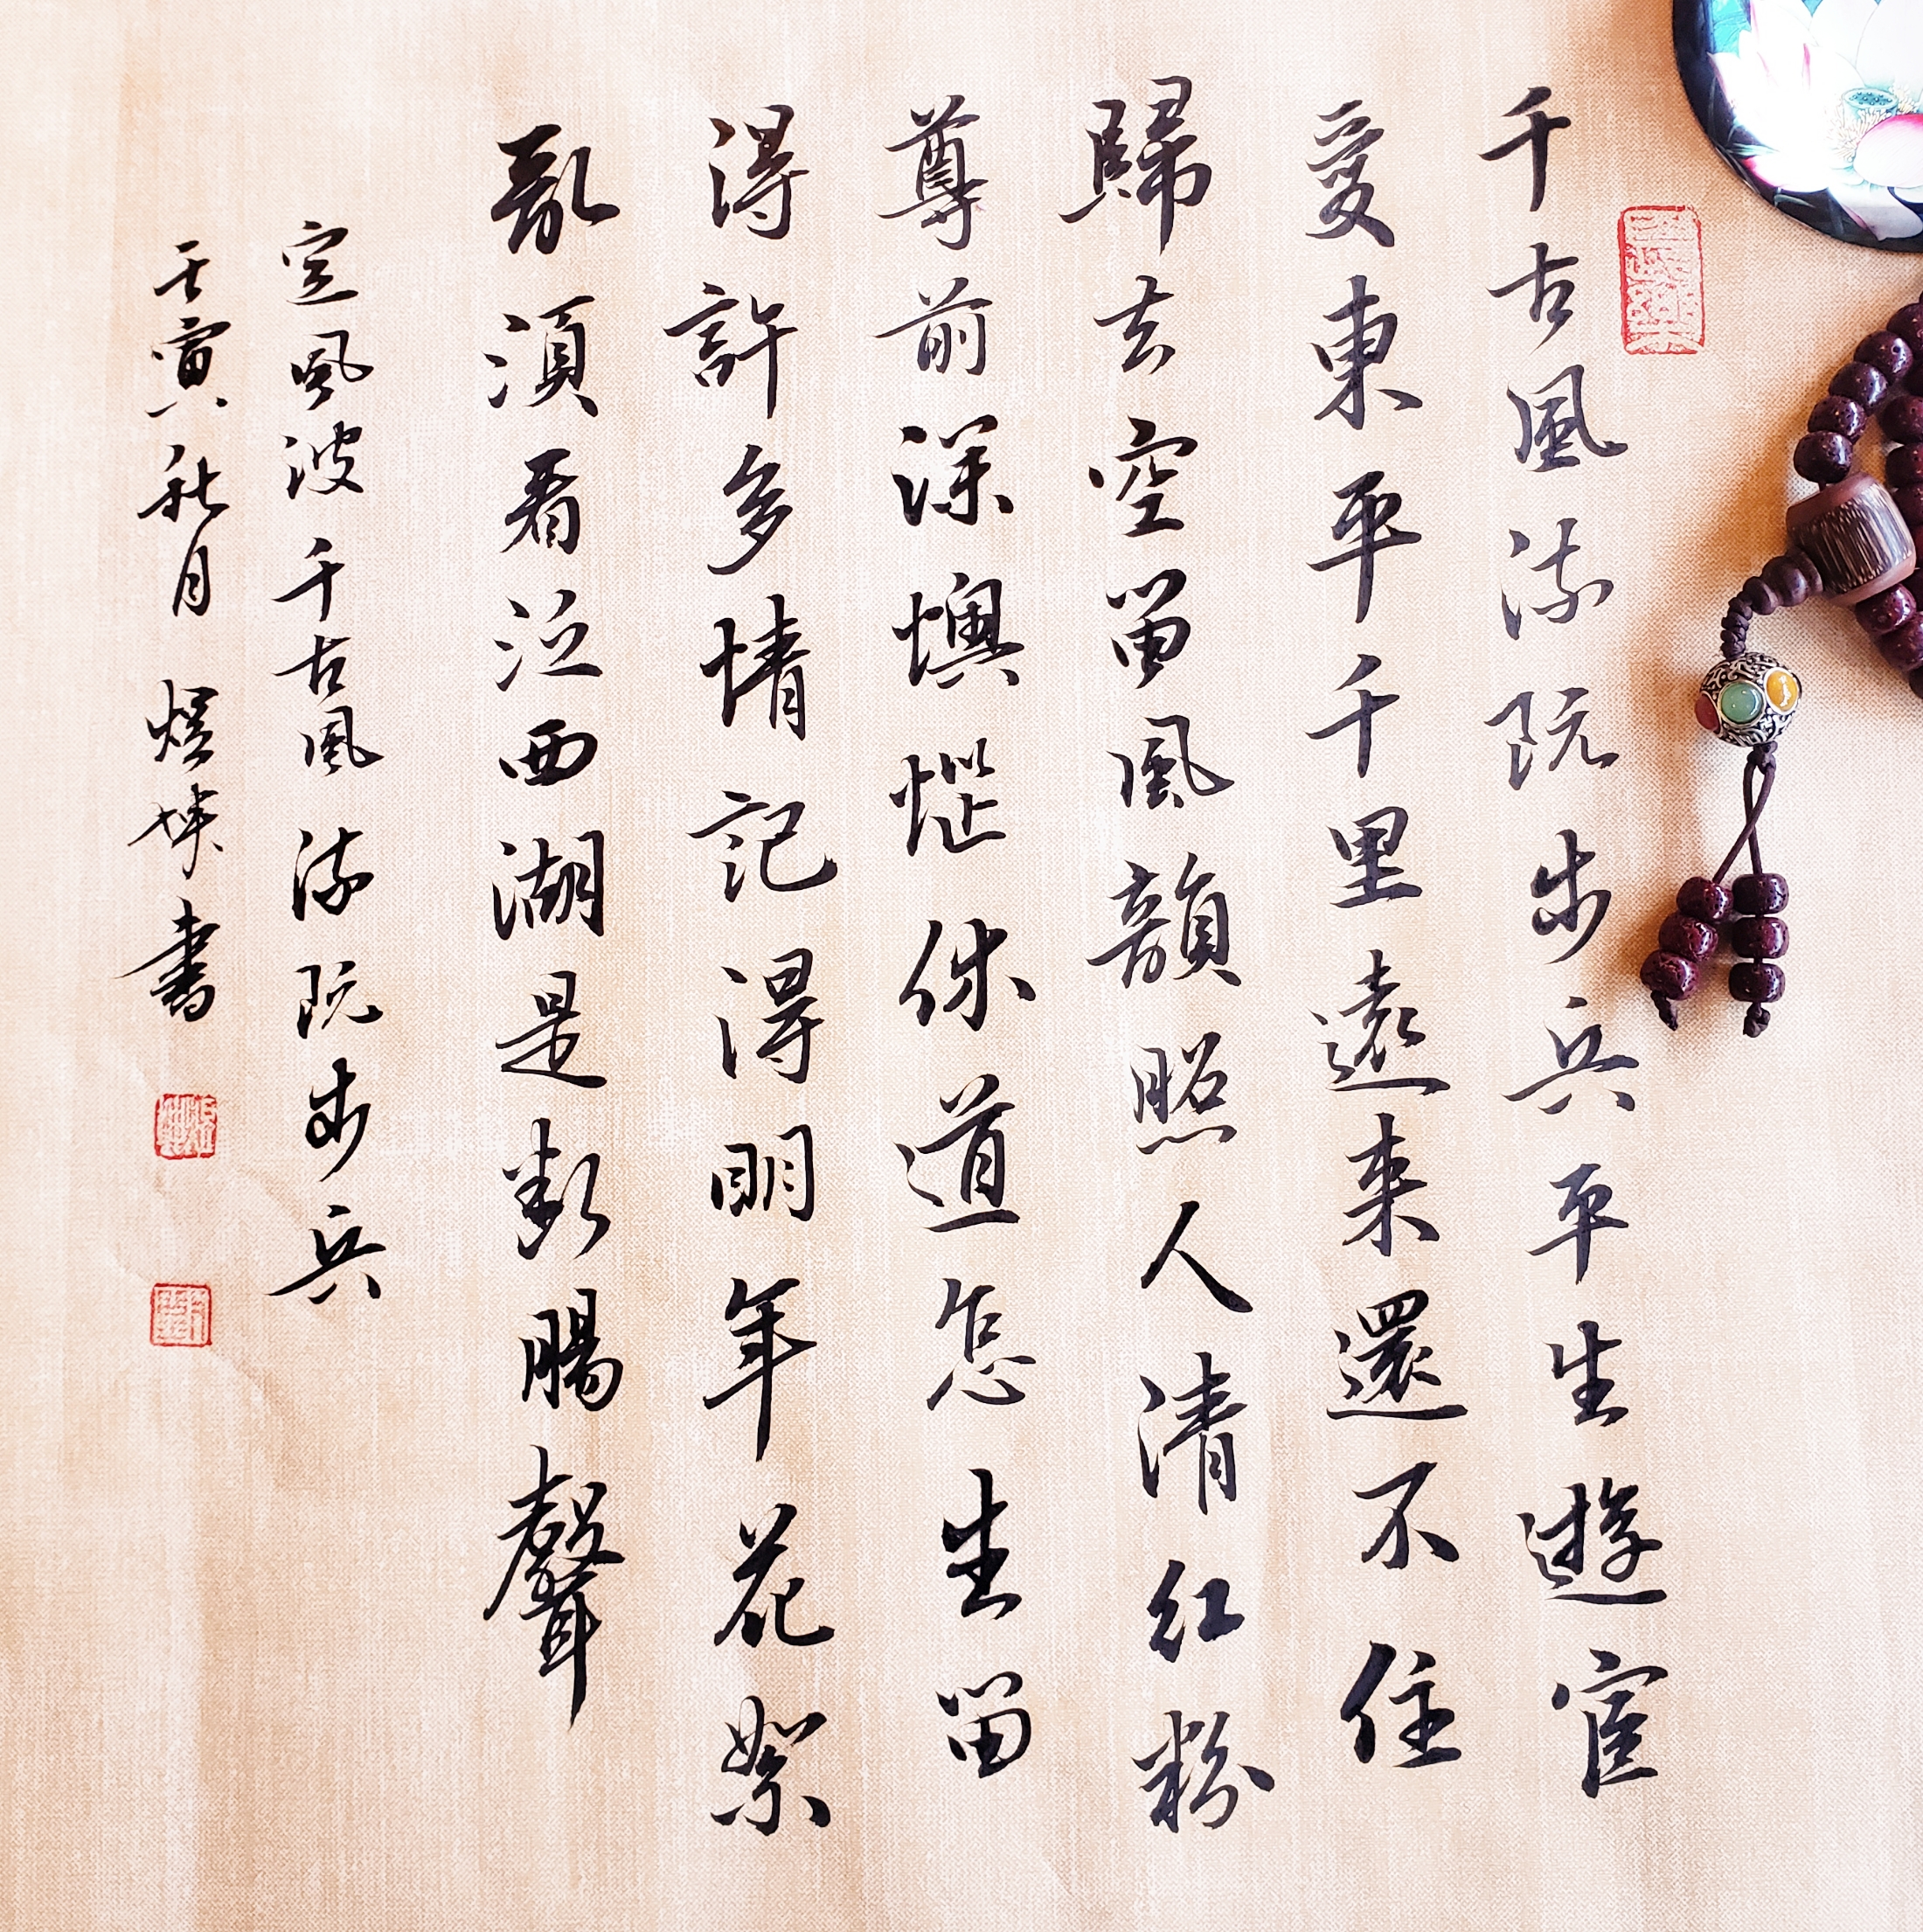 千古風流阮步兵平生遊宦
愛東平千里遠来還不住
歸去空留風韻照人清红粉
尊前深懊惱休道怎生留
得許多情記得明年花絮
亂須看泛西湖是断腸聲
定風波千古風流阮步兵
壬寅秋月煜坤書